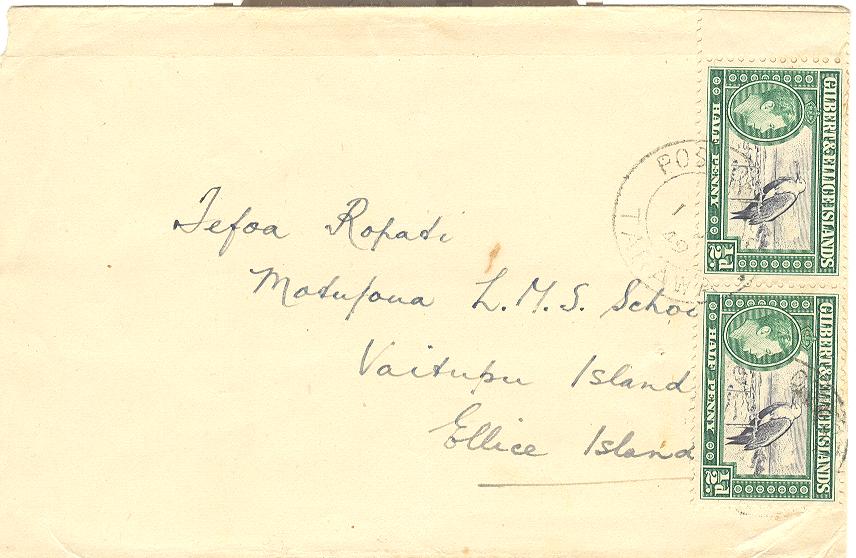 Tefoa Ropati
Motufoua L.M.S. Schoo
Vaitupu Island
Ellice Island
GILBERT & ELLICE ISLANDS
HALF PENNY
½d
GILBERT & ELLICE ISLANDS
HALF PENNY
½d
POS
TA AWA
1
49